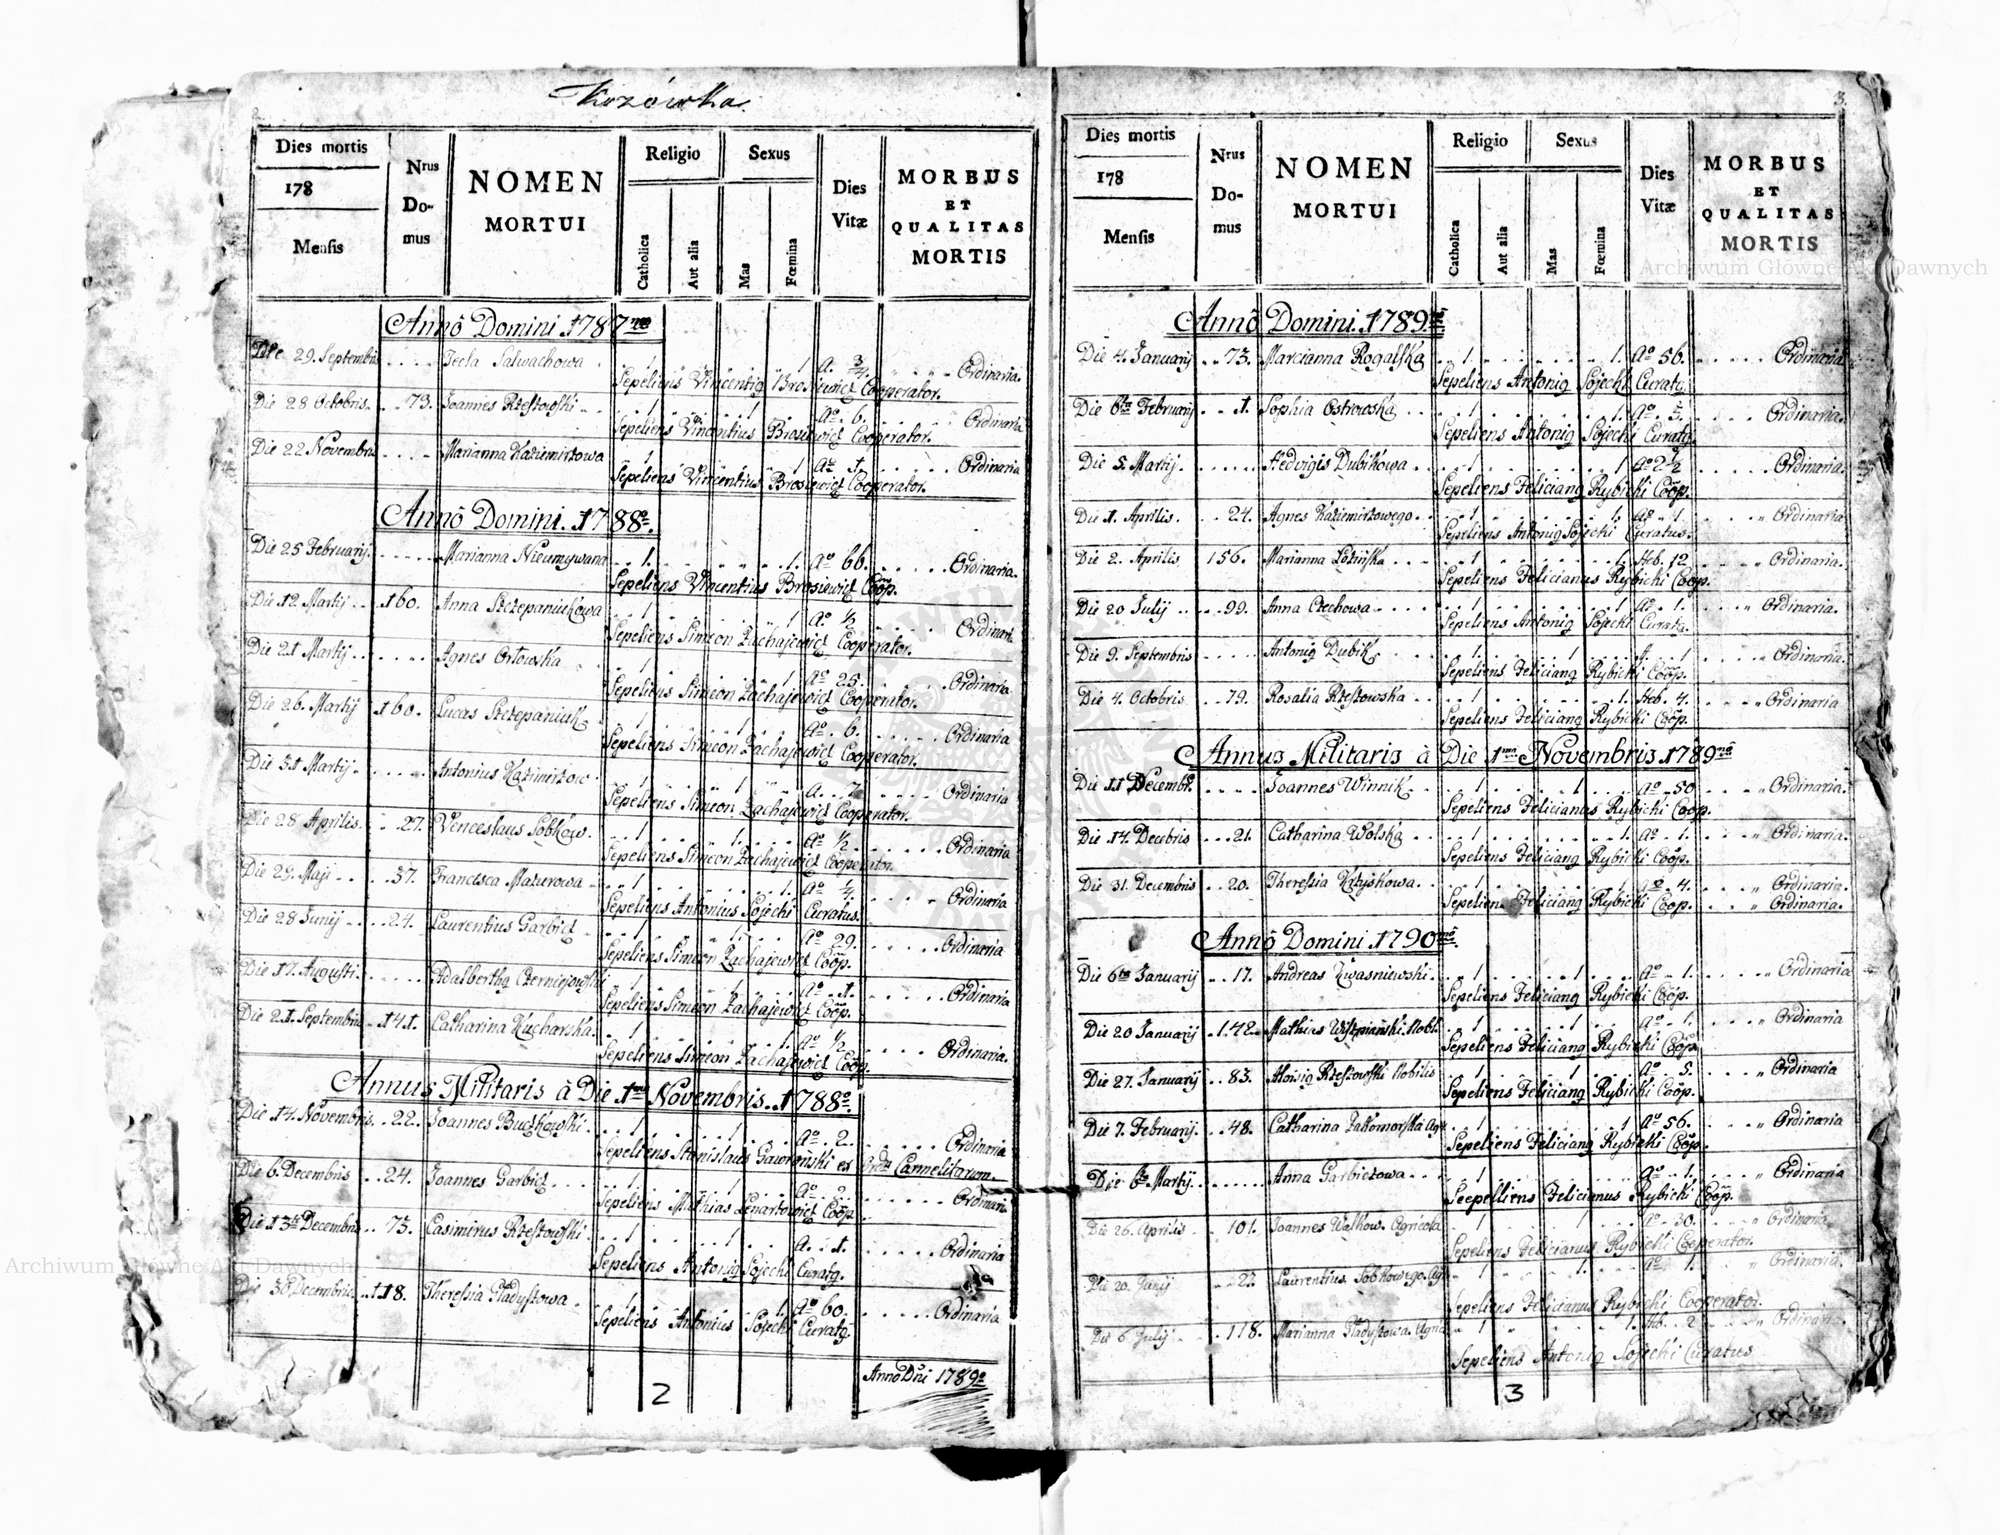 Krzówka
3.
Dies mortis
178
Mensis
Nrus Domus
NOMEN
MORTUI
Religio
Catholica
Aut alia
Sexus
Mas
Fœmina
Dies
Vitæ
MORBUS
ET
QUALITAS
MORTIS
Annô Domini 1787
Die 29. Septembris Tecla Salwachowa 1 1 A. 3/4. Ordinaria.
Sepeliens Vincentig Brosiewicz Cooperator.
Die 28 Octobris 73. Joannes Rzeszowski 1 1 Aº 6. Ordinaria
Sepeliens Vincentius Brosiewicz Cooperator.
Die 22 Novembris Marianna Kazimirzowa 1 1 Aº 1. Ordinaria
Sepeliens Vincentius Brosiewicz Cooperator.
Annô Domini 1788º
Die 25 Februarij. Marianna Nieumywana 1. 1. Aº 66. Ordinaria.
Sepeliens Vincentius Brosiewicz Coop.
Die 12 Martij 160. Anna Szczepaniukowa 1 1 Aº 1/2 Ordinaria
Sepeliens Simeon Zachajewicz Cooperator.
Die 21 Martij Agnes Orłowska 1 1 Aº 25. Ordinaria
Sepeliens Simeon Zachajewicz Cooperator.
Die 26. Martij 160. Lucas Szczepaniuk 1 1 Aº 6. Ordinaria
Sepeliens Simeon Zachajewicz Cooperator.
Die 31 Martij Antonius Kazimirzow 1 1 A. Ordinaria
Sepeliens Simeon Zachajewicz Cooperator.
Die 28 Aprilis 27. Venceslaus Sobkow. 1 1. Aº 1/2 Ordinaria
Sepeliens Simeon Zachajewicz Cooperator.
Die 29. Maji 37. Francisca Mazurowa 1 1. Aº 1/4 Ordinaria
Sepeliens Antonius Sojecki Curatus.
Die 28 Junij 24. Laurentius Garbicz 1 1. Aº 29. Ordinaria
Sepeliens Simeon Zachajewicz Coop.
Die 17. Augusti Adalbertg Czerniejowski 1 1. Aº 1. Ordinaria
Sepeliens Simeon Zachajewicz Coop.
Die 21. Septembris 141. Catharina Kucharska. 1 1. Aº 1/2 Ordinaria.
Sepeliens Simeon Zachajewicz Coop.
Annus Militaris à Die 1ma Novembris. 1788º
Die 14. Novembris. 22. Joannes Buczkowski 1 1 Aº 2. Ordinaria
Sepeliens Stanislaus Gawroński ex Ordi Carmelitarum.
Die 6. Decembris 24. Joannes Garbicz 1 1 Aº 2. Ordinaria
Sepeliens Mathias Lenartowicz Coop.
Die 13tia Decembris 73. Casimirus Rzeszowski 1 1 A. 1. Ordinaria
Sepeliens Antonig Sojecki Curatg.
Die 30 Decembris 118. Theressia Gładyszowa 1 1. Aº 60. Ordinaria
Sepeliens Antonius Sojecki Curatg.
Anno Dni 1789º
2
Dies mortis
178
Mensis
Nrus Domus
NOMEN
MORTUI
Religio
Catholica
Aut alia
Sexus
Mas
Fœmina
Dies
Vitæ
MORBUS
ET
QUALITAS
MORTIS
Annô Domini 1789
Die 4. Januarij 73. Marcianna Rogalska 1. 1. Aº 56. Ordinaria
Sepeliens Antonig Sojecki Curatg.
Die 6ta Februarij 1. Sophia Ostrowska 1 1. Aº Ordinaria
Sepeliens Antonig Sojecki Curatg
Die 5. Martij. Hedvigis Dubikowa 1 1 Aº 2 1/2 Ordinaria
Sepeliens Feliciang Rybicki Coop.
Die 1. Aprilis. 24. Agnes Kazimirzowego 1 1. Aº 1. Ordinaria
Sepeliens Antonig Sojecki Curatus.
Die 2. Aprilis 156. Marianna Leżińska 1 1 Heb. 12 Ordinaria.
Sepeliens Felicianus Rybicki Coop.
Die 20 Julij 99. Anna Czechowa 1 1 Aº 1. Ordinaria.
Sepeliens Antonig Sojecki Curatg.
Die 9. Septembris Antonig Dubik 1. 1 1 Ordinaria.
Sepeliens Feliciang Rybicki Coop.
Die 4. Octobris 79. Rosalia Rzeszowska 1 1. Heb. 4. Ordinaria
Sepeliens Feliciang Rybicki Coop.
Annus Militaris à Die 1ma Novembris 1789
Die 11 Decembr. Joannes Winnik 1 1 Aº 50 Ordinaria.
Sepeliens Felicianus Rybicki Coop.
Die 14. Decebris 21. Catharina Wolska 1 1. Aº 1. Ordinaria.
Sepeliens Feliciang Rybicki Coop.
Die 31. Decembris 20. Theressia Krzyskowa. 1 1. Aº 4. Ordinaria.
Sepeliens Feliciang Rybicki Coop. Ordinaria.
Annô Domini 1790
Die 6ta Januarij 17. Andreas Kwasniewski. 1 1 Aº 1. Ordinaria
Sepeliens Feliciang Rybicki Coop.
Die 20 Januarij 142. Mathias Wyszpiański. Nobl. 1 1 Aº 1. Ordinaria
Sepeliens Feliciang Rybicki Coop.
Die 27. Januarij 83. Aloisig Rzeszowski Nobilis 1 1 Aº 5. Ordinaria
Sepeliens Feliciang Rybicki Coop.
Die 7. Februarij. 48. Catharina Zakomorska Agn 1 1 Aº 56. Ordinaria
Sepeliens Feliciang Rybicki Coop.
Die 6ta Martij. Anna Garbiczowa 1 1 Aº 1. Ordinaria
Seepelliens Felicianus Rybicki Coop.
Die 26. Aprilis 101. Joannes Walkow. Agricola 1 1 Aº 30. Ordinaria
Sepeliens Felicianus Rybicki Cooperator.
Die 20. Junij 27. Laurentius Sobkowego 1 1. Aº 1. Ordinaria.
Sepeliens Felicianus Rybicki Cooperator.
Die 6 Julij 118. Marianna Gładyszowa. 1 1. Heb. 2 Ordinaria
Sepeliens Antonig Sojecki Curatus
3
Archiwum Główne Akt Dawnych
Archiwum Główne Akt Dawnych